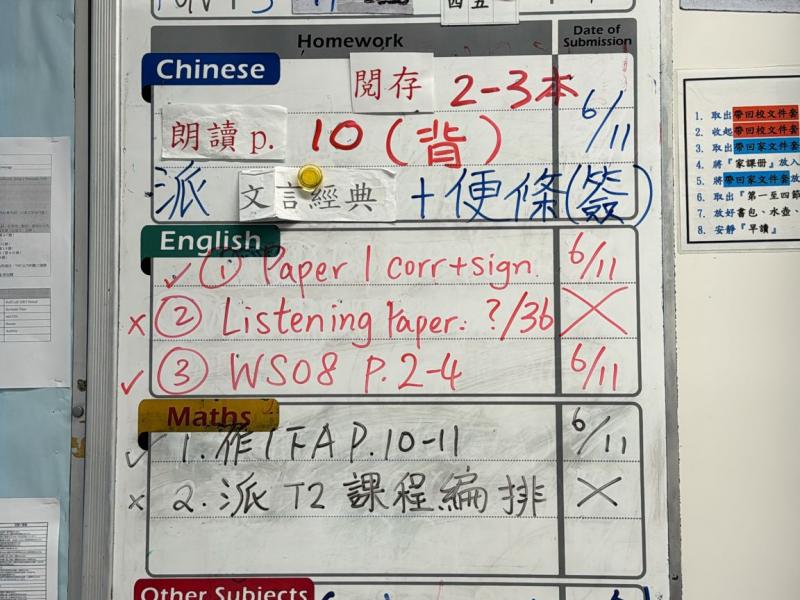 四 五
Homework
Date of Submission
Chinese
閱存 2-3本
6/11
朗讀 p. 10 (背)
派 文言經典 + 便條(簽)
English
✓ ① Paper 1 corr+sign. 6/11
x ② Listening Paper: ?/36 X
✓ ③ WS08 P.2-4 6/11
Maths
✓ 1. 作1下A P.10-11 6/11
x 2. 派 T2 課程編排 X
Other Subjects
1. 取出帶回校文件套
2. 收起帶回校文件套
3. 取出帶回家文件套
4. 將『家課冊』放入
5. 將帶回家文件套放
6. 取出『第一至四節
7. 放好書包、水壺、
8. 安靜『早讀』